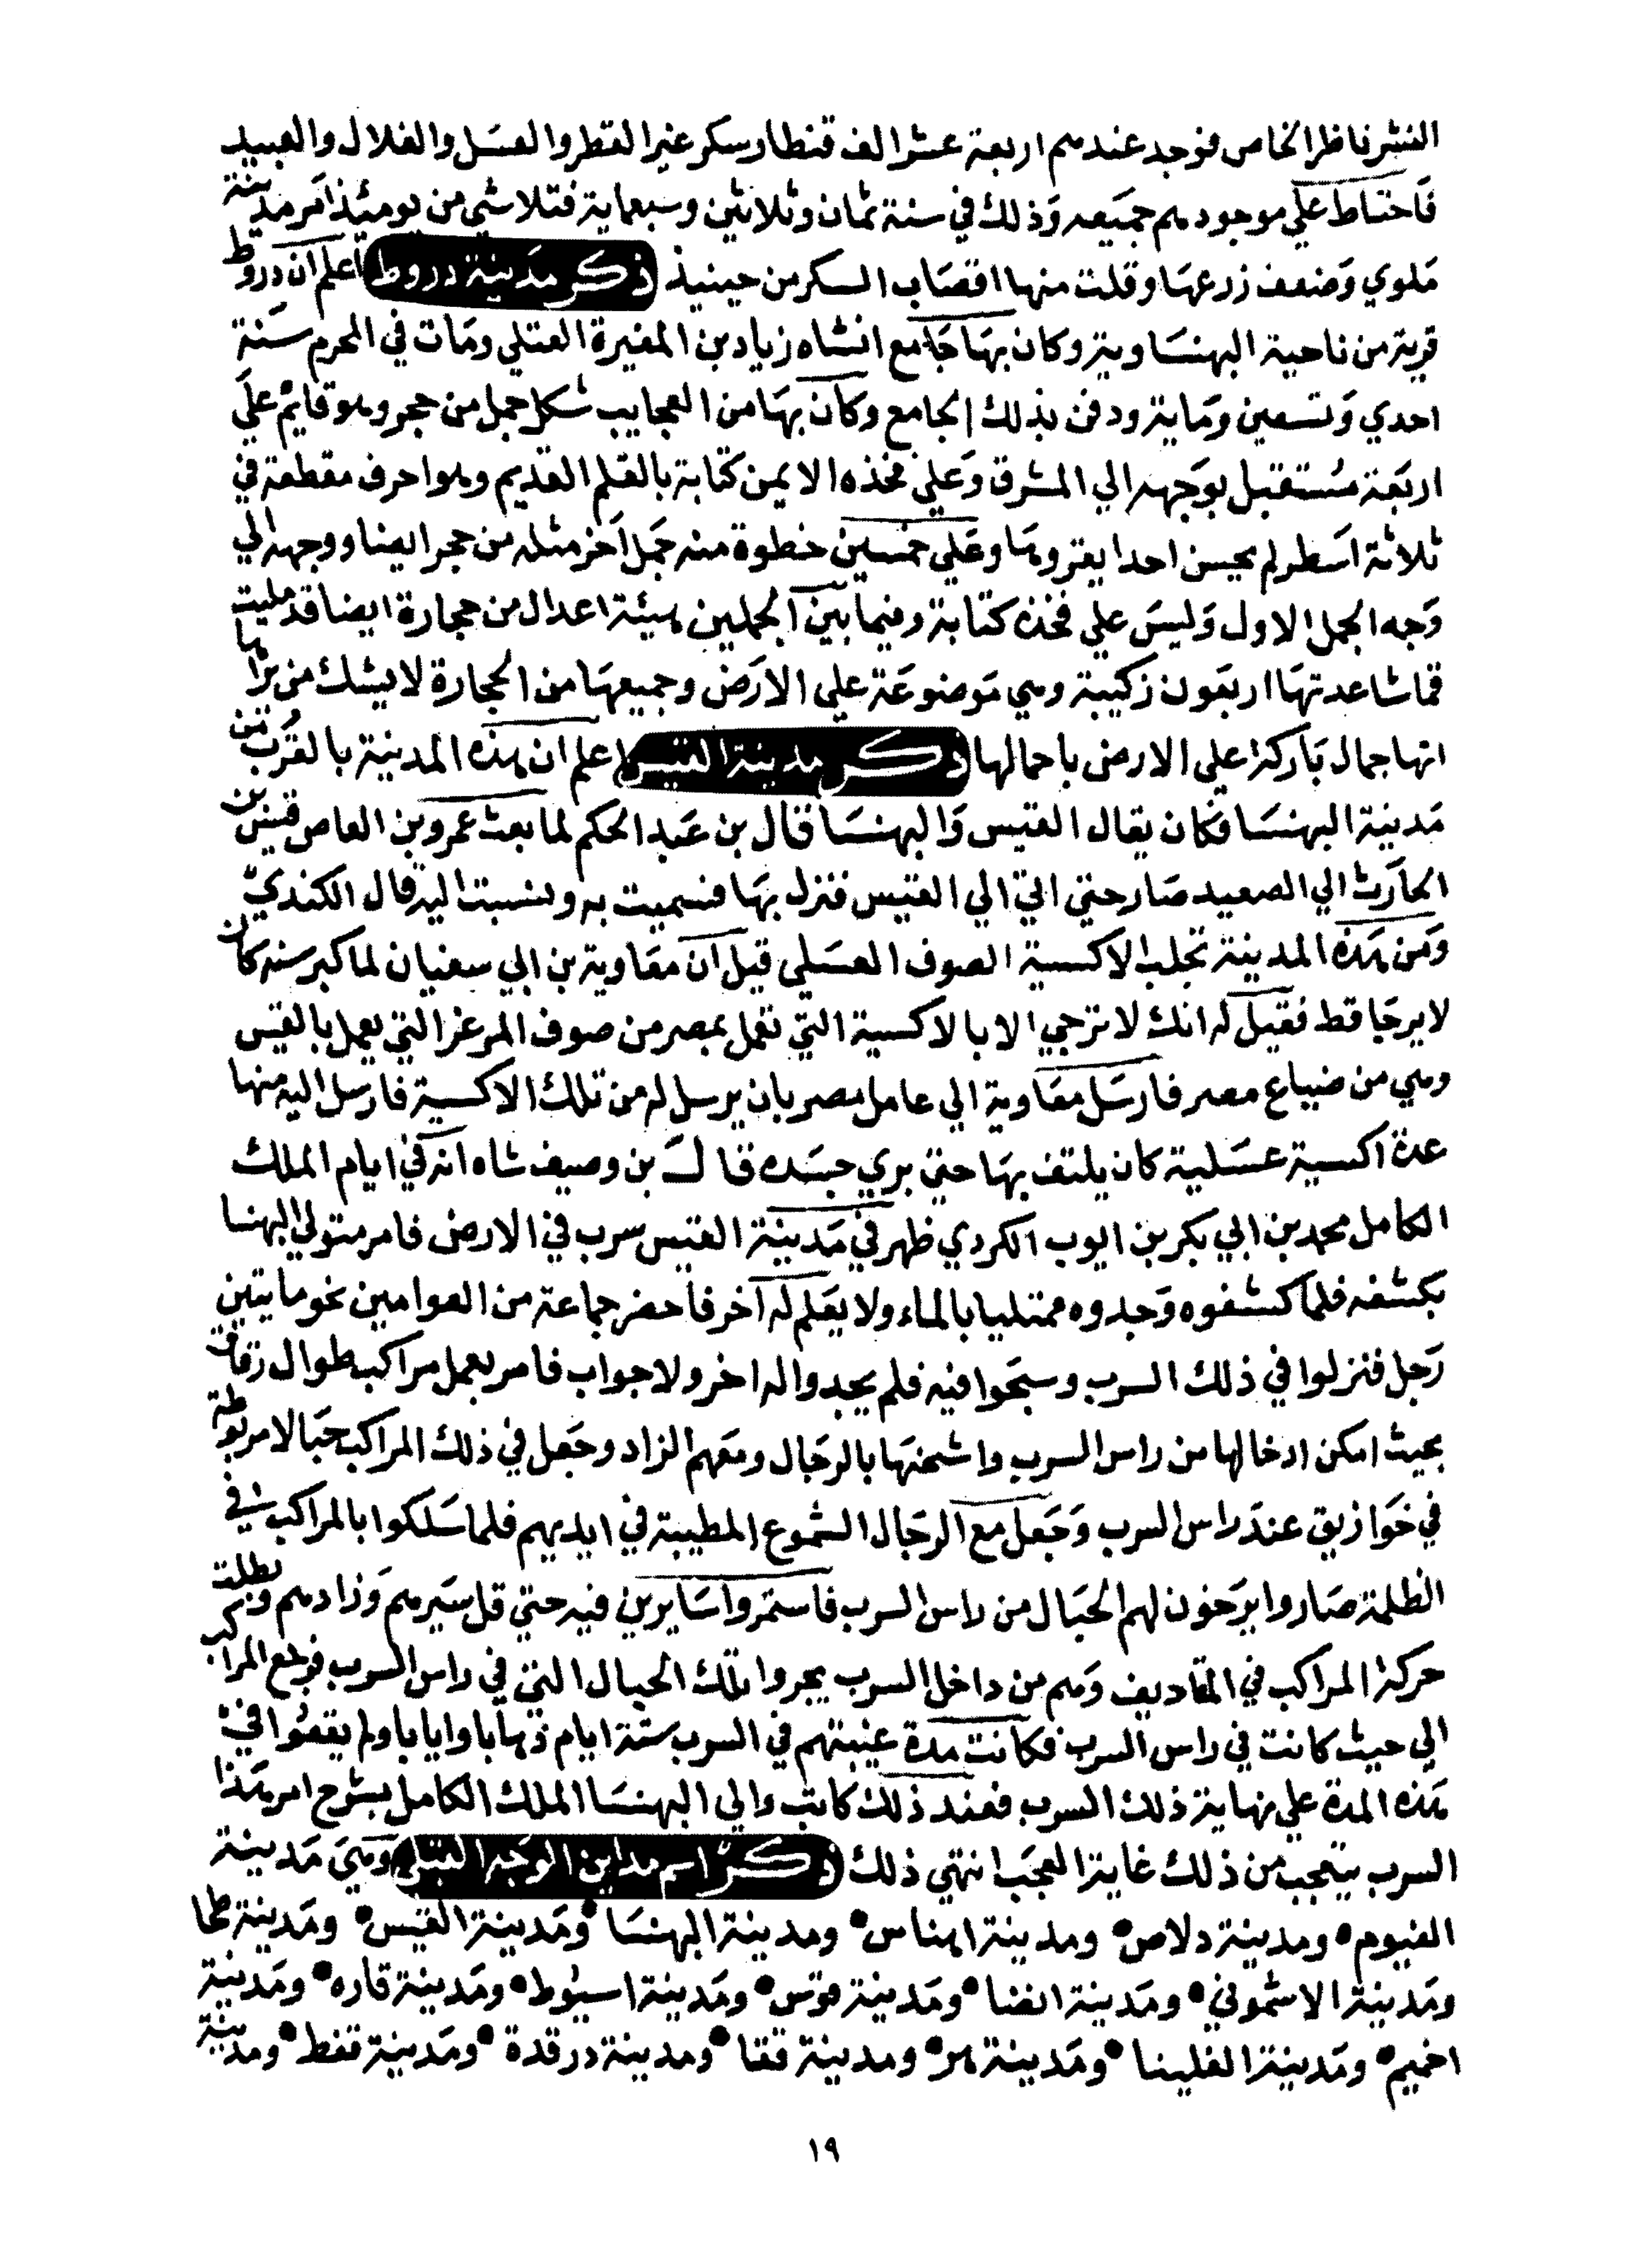 النشر ناظر الخاص فوجد عندهم اربعة عشر الف قنطار سكر غير القطر والعسل والغلال والعبيد
فاحتاط علي موجودهم جميعه وذلك في سنة ثمان وثلاثين وسبعماية فتلاشي من يوميئذ امر مدينة
ملوي وضعف زرعها وقلت منها اقصاب السكر من حينيذ ذكر مدينة دروط اعلم ان دروط
قرية من ناحية البهنساوية وكان بها جامع انشاه زياد بن المغيرة العتلي ومات في المحرم سنة
احدي وتسعين وماية ودفن بذلك الجامع وكان بها من العجايب شكل جمل من حجر وهو قايم علي
اربعة مستقبل بوجهه الي المشرق وعلي فخذه الايمن كتابة بالقلم القديم وهو احرف مقطعة في
ثلاثة اسطر لم يحسن احدا يقروها وعلي خمسين خطوة منه جمل اخر مثله من حجر ايضا ووجهه الي
وجه الجمل الاول وليس علي فخذه كتابة وفيما بين الجملين هيئة اعدال من حجارة ايضا قد مليت
قماشا عدتها اربعون زكيبة وهي موضوعة علي الارض وجميعها من الحجارة لا يشك من يراها
انها جمال باركة علي الارض باحمالها ذكر مدينة القيس اعلم ان هذه المدينة بالقرب من
مدينة البهنسا فكان يقال القيس والبهنسا قال بن عبد الحكم لما بعث عمرو بن العاص قيس بن
الحارث الي الصعيد صار حتي اتي الي القيس فنزل بها فسميت به ونسبت اليه قال الكندي
ومن هذه المدينة تجلب الاكسية الصوف العسلي قيل ان معاوية بن ابي سفيان لما كبر سنه كان
لا يرجا قط فقيل له انك لا تزجي الا بالاكسية التي تعمل بمصر من صوف المرعز التي يعمل بالقيس
وهي من ضياع مصر فارسل معاوية الي عامل مصر بان يرسل له من تلك الاكسية فارسل اليه منها
عدة اكسية عسلية كان يلتف بها حتي بري جسده قال بن وصيف شاه انه في ايام الملك
الكامل محمد بن ابي بكر بن ايوب الكردي ظهر في مدينة القيس سرب في الارض فامر متولي البهنسا
بكشفه فلما كشفوه وجدوه ممتليا بالماء ولا يعلم له آخر فاحضر جماعة من العوامين نحو مايتين
رجل فنزلوا في ذلك السرب وسبحوا فيه فلم يجدوا له اخر ولا جواب فامر بعمل مراكب طوال رقاق
بحيث امكن ادخالها من راس السرب واشحنها بالرجال ومعهم الزاد وجعل في ذلك المراكب حبالا مربوطة
في خوازيق عند راس السرب وجعل مع الرجال الشموع المطيبة في ايديهم فلما سلكوا بالمراكب في
الظلمة صاروا يرخون لهم الحبال من راس السرب فاستمروا سايرين فيه حتي قل سيرهم وزادهم وبطلت
حركة المراكب في المقاديف وهم من داخل السرب يجروا بتلك الحبال التي في راس السرب فرجع المراكب
الي حيث كانت في راس السرب فكانت مدة غيبتهم في السرب ستة ايام ذهابا وايابا ولم يقفوا في
هذه المدة علي نهاية ذلك السرب فعند ذلك كاتب والي البهنسا الملك الكامل بشرح امر هذا
السرب يتعجب من ذلك غاية العجب انتهي ذلك ذكر مداين الوجه القبلي وهي مدينة
الفيوم ومدينة دلاص ومدينة اهناس ومدينة البهنسا ومدينة القيس ومدينة طحا
ومدينة الاشموني ومدينة انصنا ومدينة قوس ومدينة اسيوط ومدينة قاره ومدينة
اخميم ومدينة الفلينا ومدينة هو ومدينة قفا ومدينة درقدة ومدينة قفط ومدينة
١٩